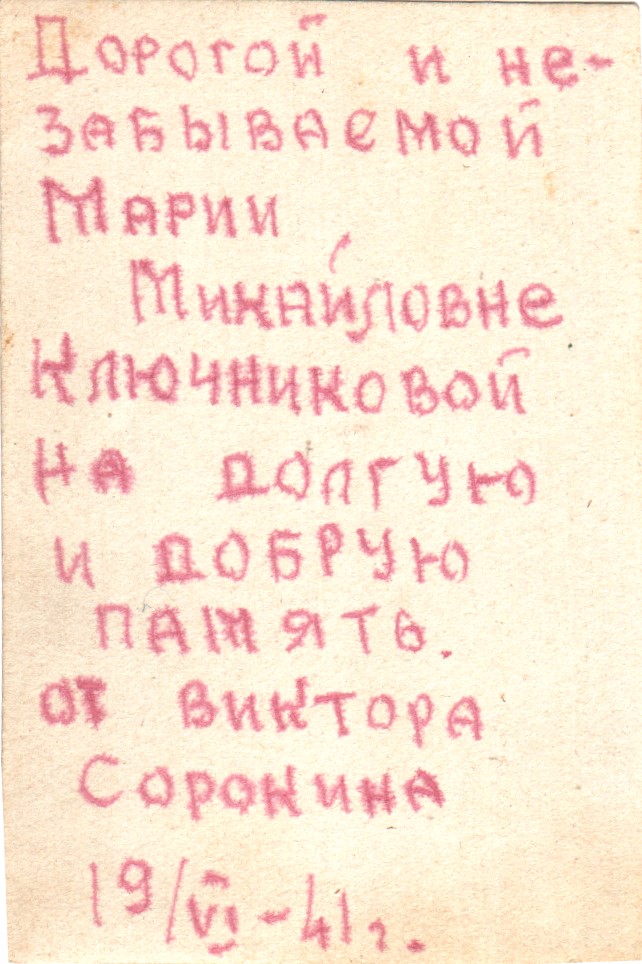 Дорогой и не-
забываемой
Марии
Михайловне
Ключниковой
на долгую
и добрую
память.
от Виктора
Сорокина
19/VI-41 г.